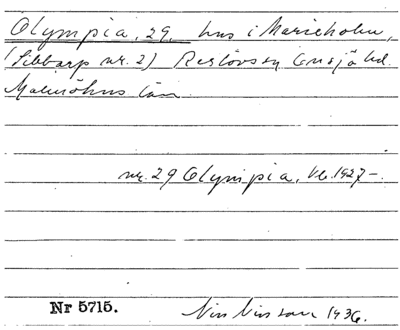 Olympia, 29. hus i Marieholm,
(Sibbarp nr. 2) Reslövs sn Onsjö hd
Malmöhus län
nr. 29 Olympia, Vb. 1927-.
Nr 5715.
Nils Nilsson 1936.